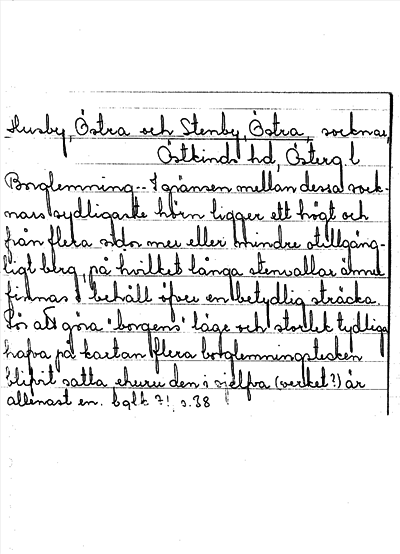 Husby, Östra och Stenby, Östra, socknar,
Östkinds hd, Österg. l
Borglemning.- I gränsen mellan dessa sock-
nars sydligaste hörn ligger ett högt och
från flera sidor mer eller mindre otillgäng-
ligt berg, på hvilket långa stenvallar ännu
finnas i behåll öfver en betydlig sträcka.
För att göra "borgens" läge och storlek tydliga
hafva på kartan flera borglemningstecken
blifvit satta, ehuru den i sjelfva (verket?) är
allenast en. bglk 7! s. 38